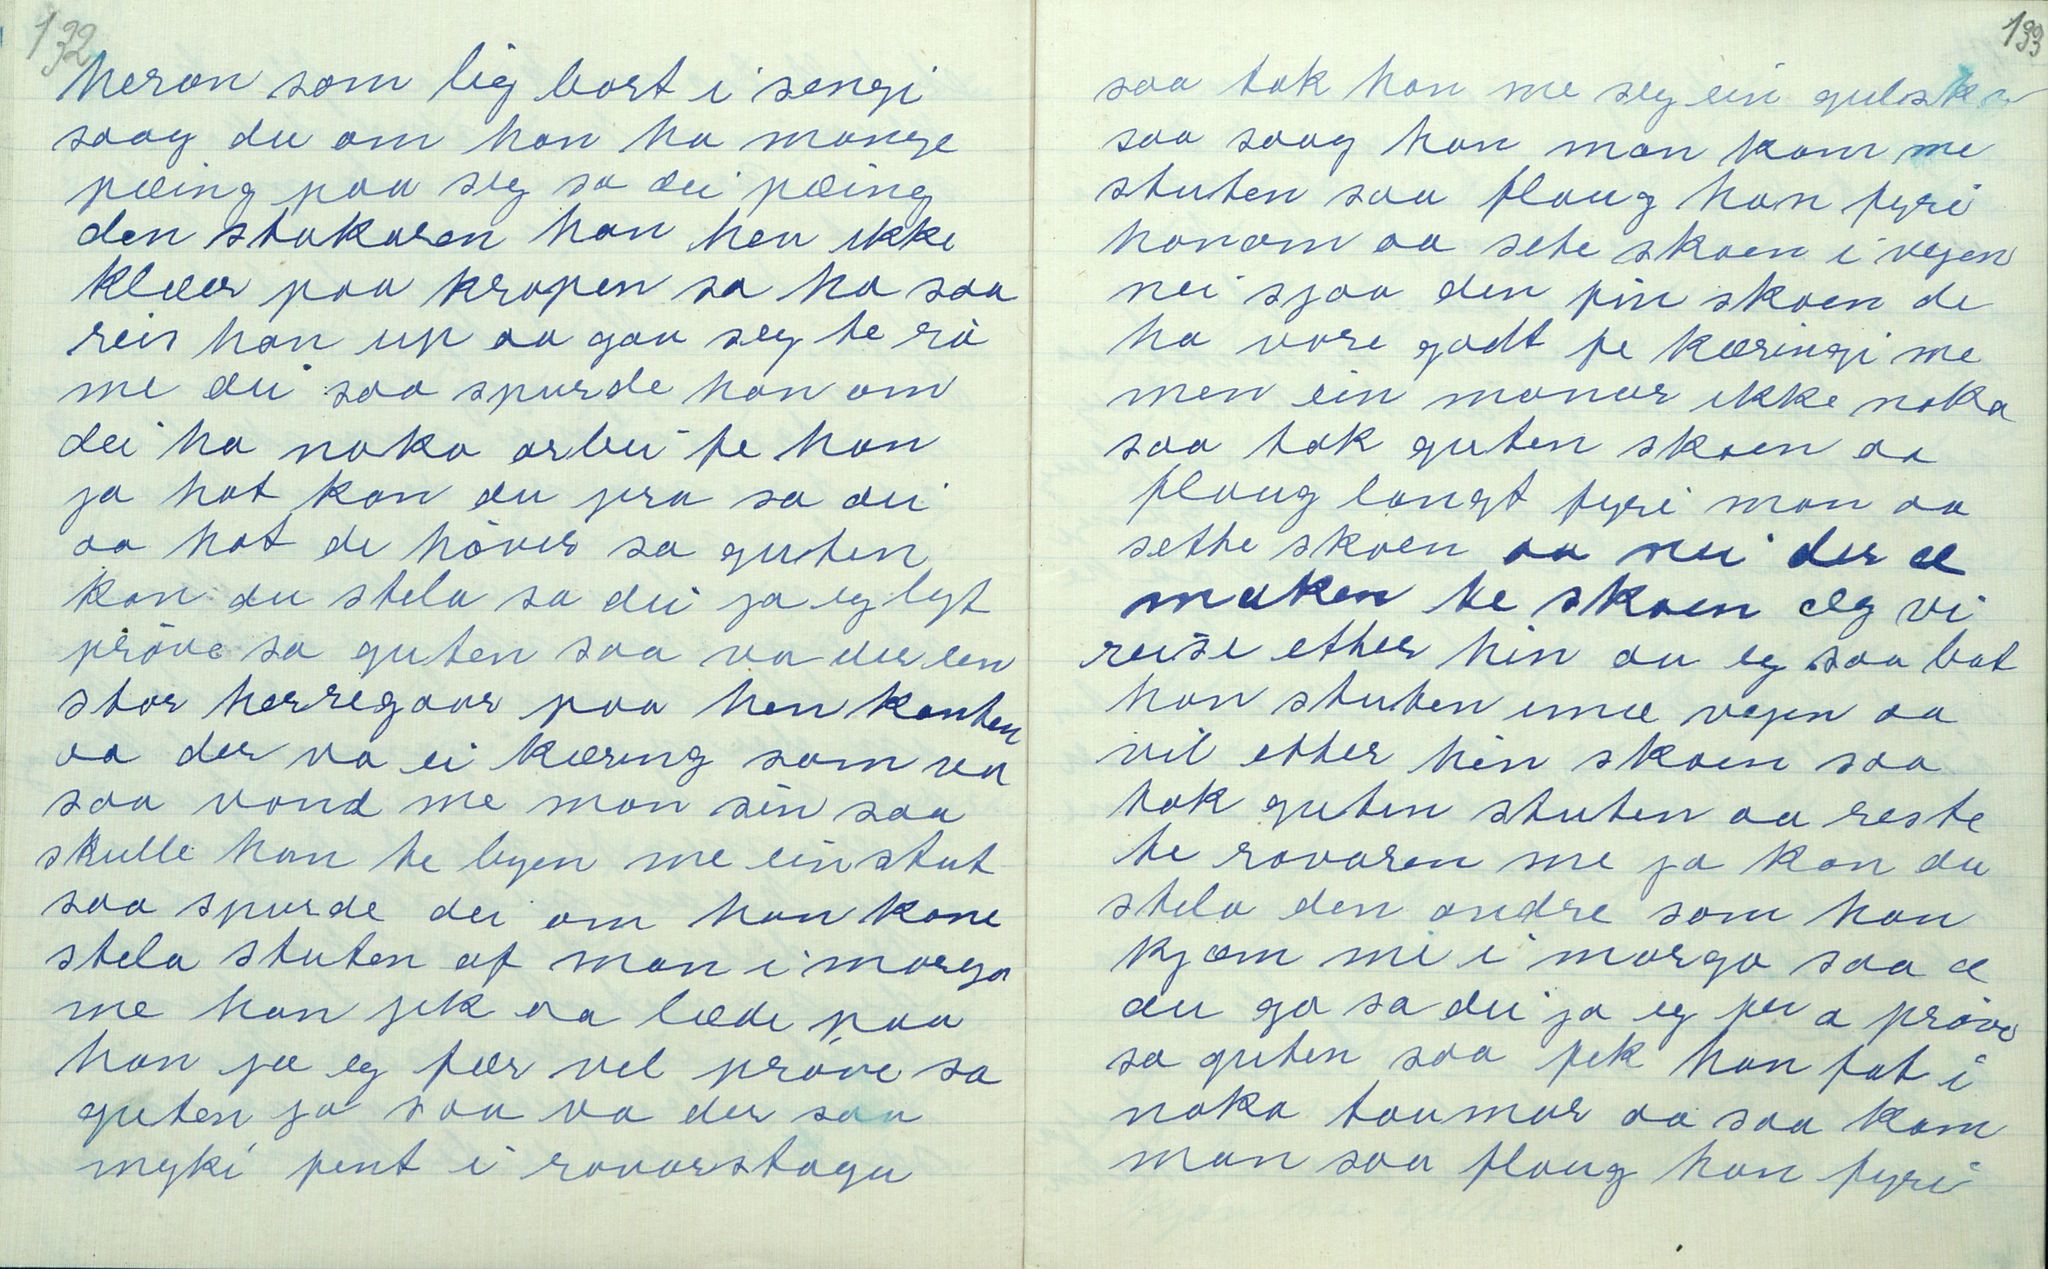 132
heran som lig bort i sengi
saag du om han ha mange
pæing paa seg sa dei pæing
den stakaren han hev ikke
klæer paa kropen sa ho saa
reis han up aa gaa seg te rò
me dei saa spurde han om
dei ha noka arbei fe han
ja hot kan du jera sa dei
aa hot de hòver sa guten
kan du stela sa dei ja eg lyt
pròve sa guten saa va der en
stor herregaar paa hen kanten
aa der va ei kæring som va
saa vond me man sin saa
skulle han te byen me ein stut
saa spurde dei om han kone
stela stuten af man i morgo
me han jek aa læde paa
han ja eg fær vel pròve sa
guten ja saa va der saa
myki pent i rovarstogu
133
saa tok han me seg ein gulsko
saa saag han man kom me
stuten saa flaug han fyri
honom aa sete skoen i vejen
nei sjaa den fin skoen de
ha vore godt fe kæringi me
men ein monar ikke noka
saa tok guten skoen aa
flaug langt fyri man aa
sethe skoen aa nei der æ
maken te skoen æg vi
reise ether hin au eg saa bat
han stuten imæ vejen aa
vil ether hin skoen saa
tok guten stuten aa reste
te rovaren me ja kan du
stela den andre som han
kjæm mi i morgo saa æ
du go sa dei ja eg fer a pròve
sa guten saa fek han fat i
noka taumar aa saa kom
man saa flaug han fyri